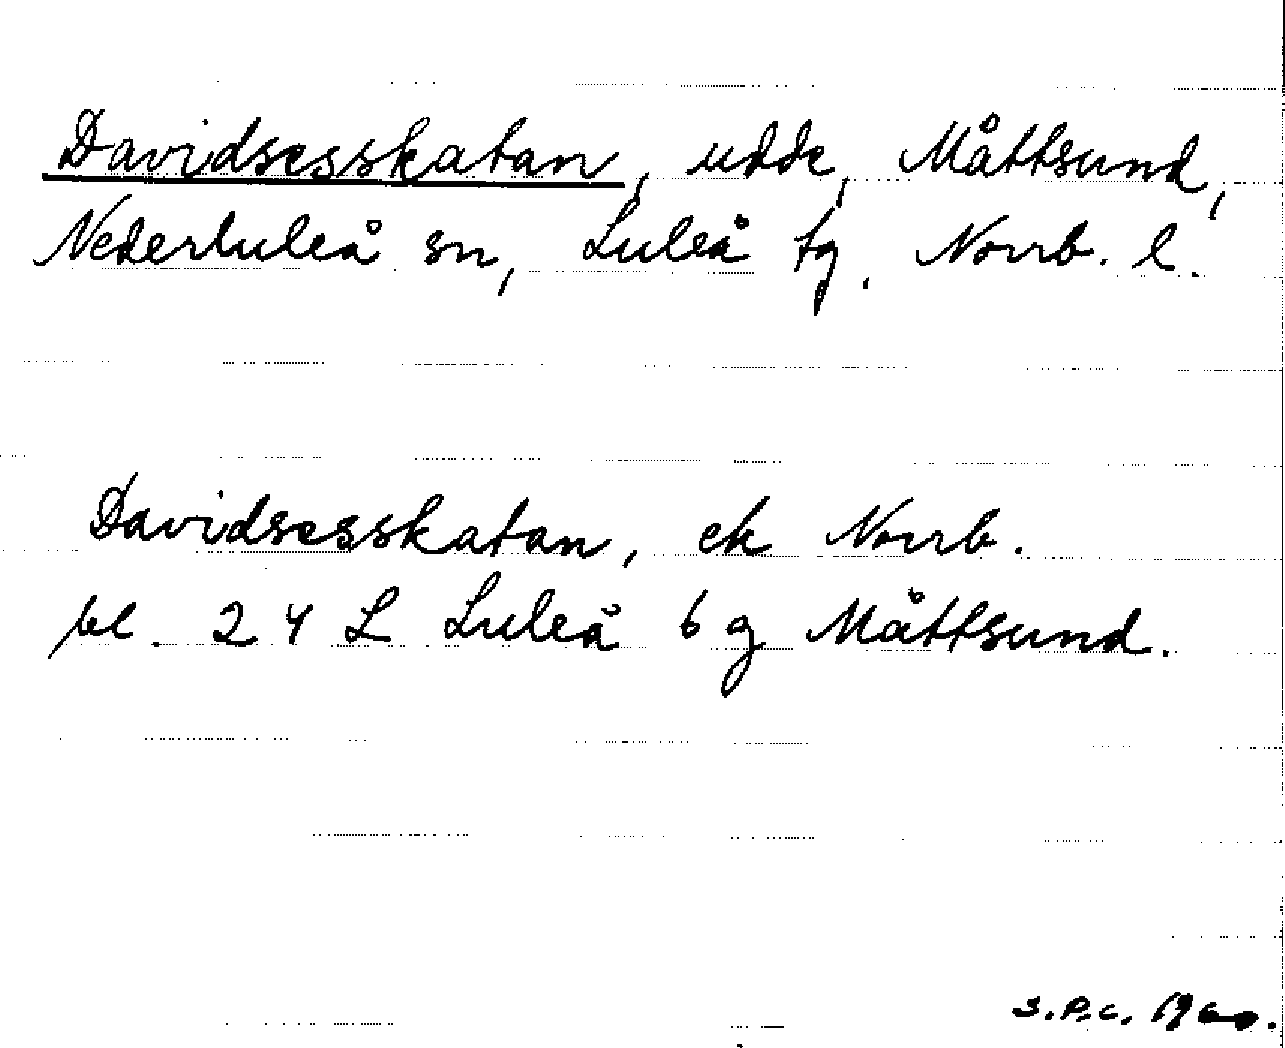 Davidsesskatan, udde, Måttsund,
Nederluleå sn, Luleå tg. Norrb. l.
Davidsesskatan, ek Norrb.
bl. 24 L Luleå 6 g Måttsund.
S.P.C. 1960.